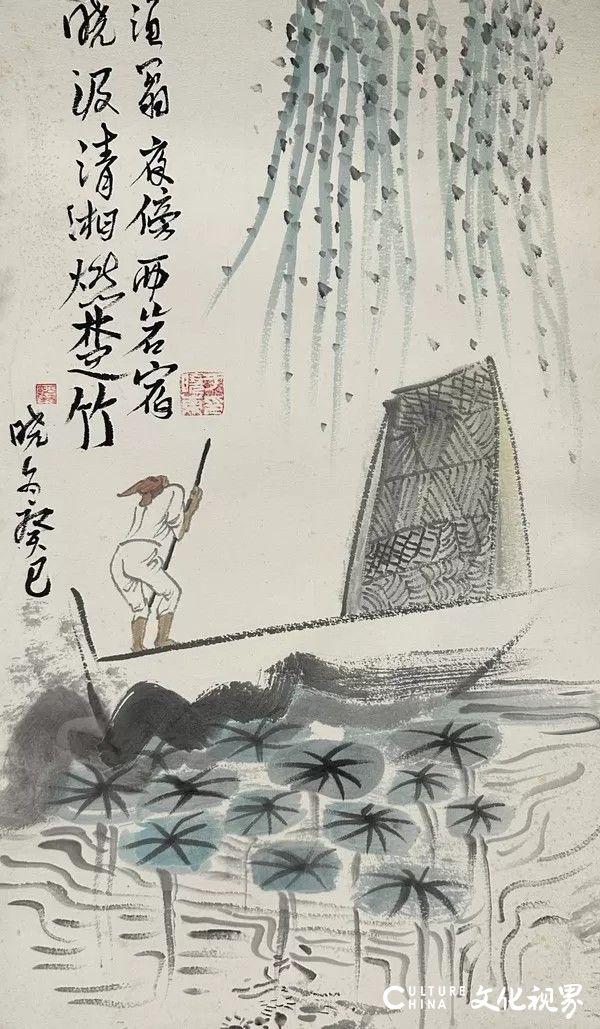 渔翁夜傍西岩宿
晓汲清湘燃楚竹
晓 癸巳
CULTURE
CHINA
文化视界